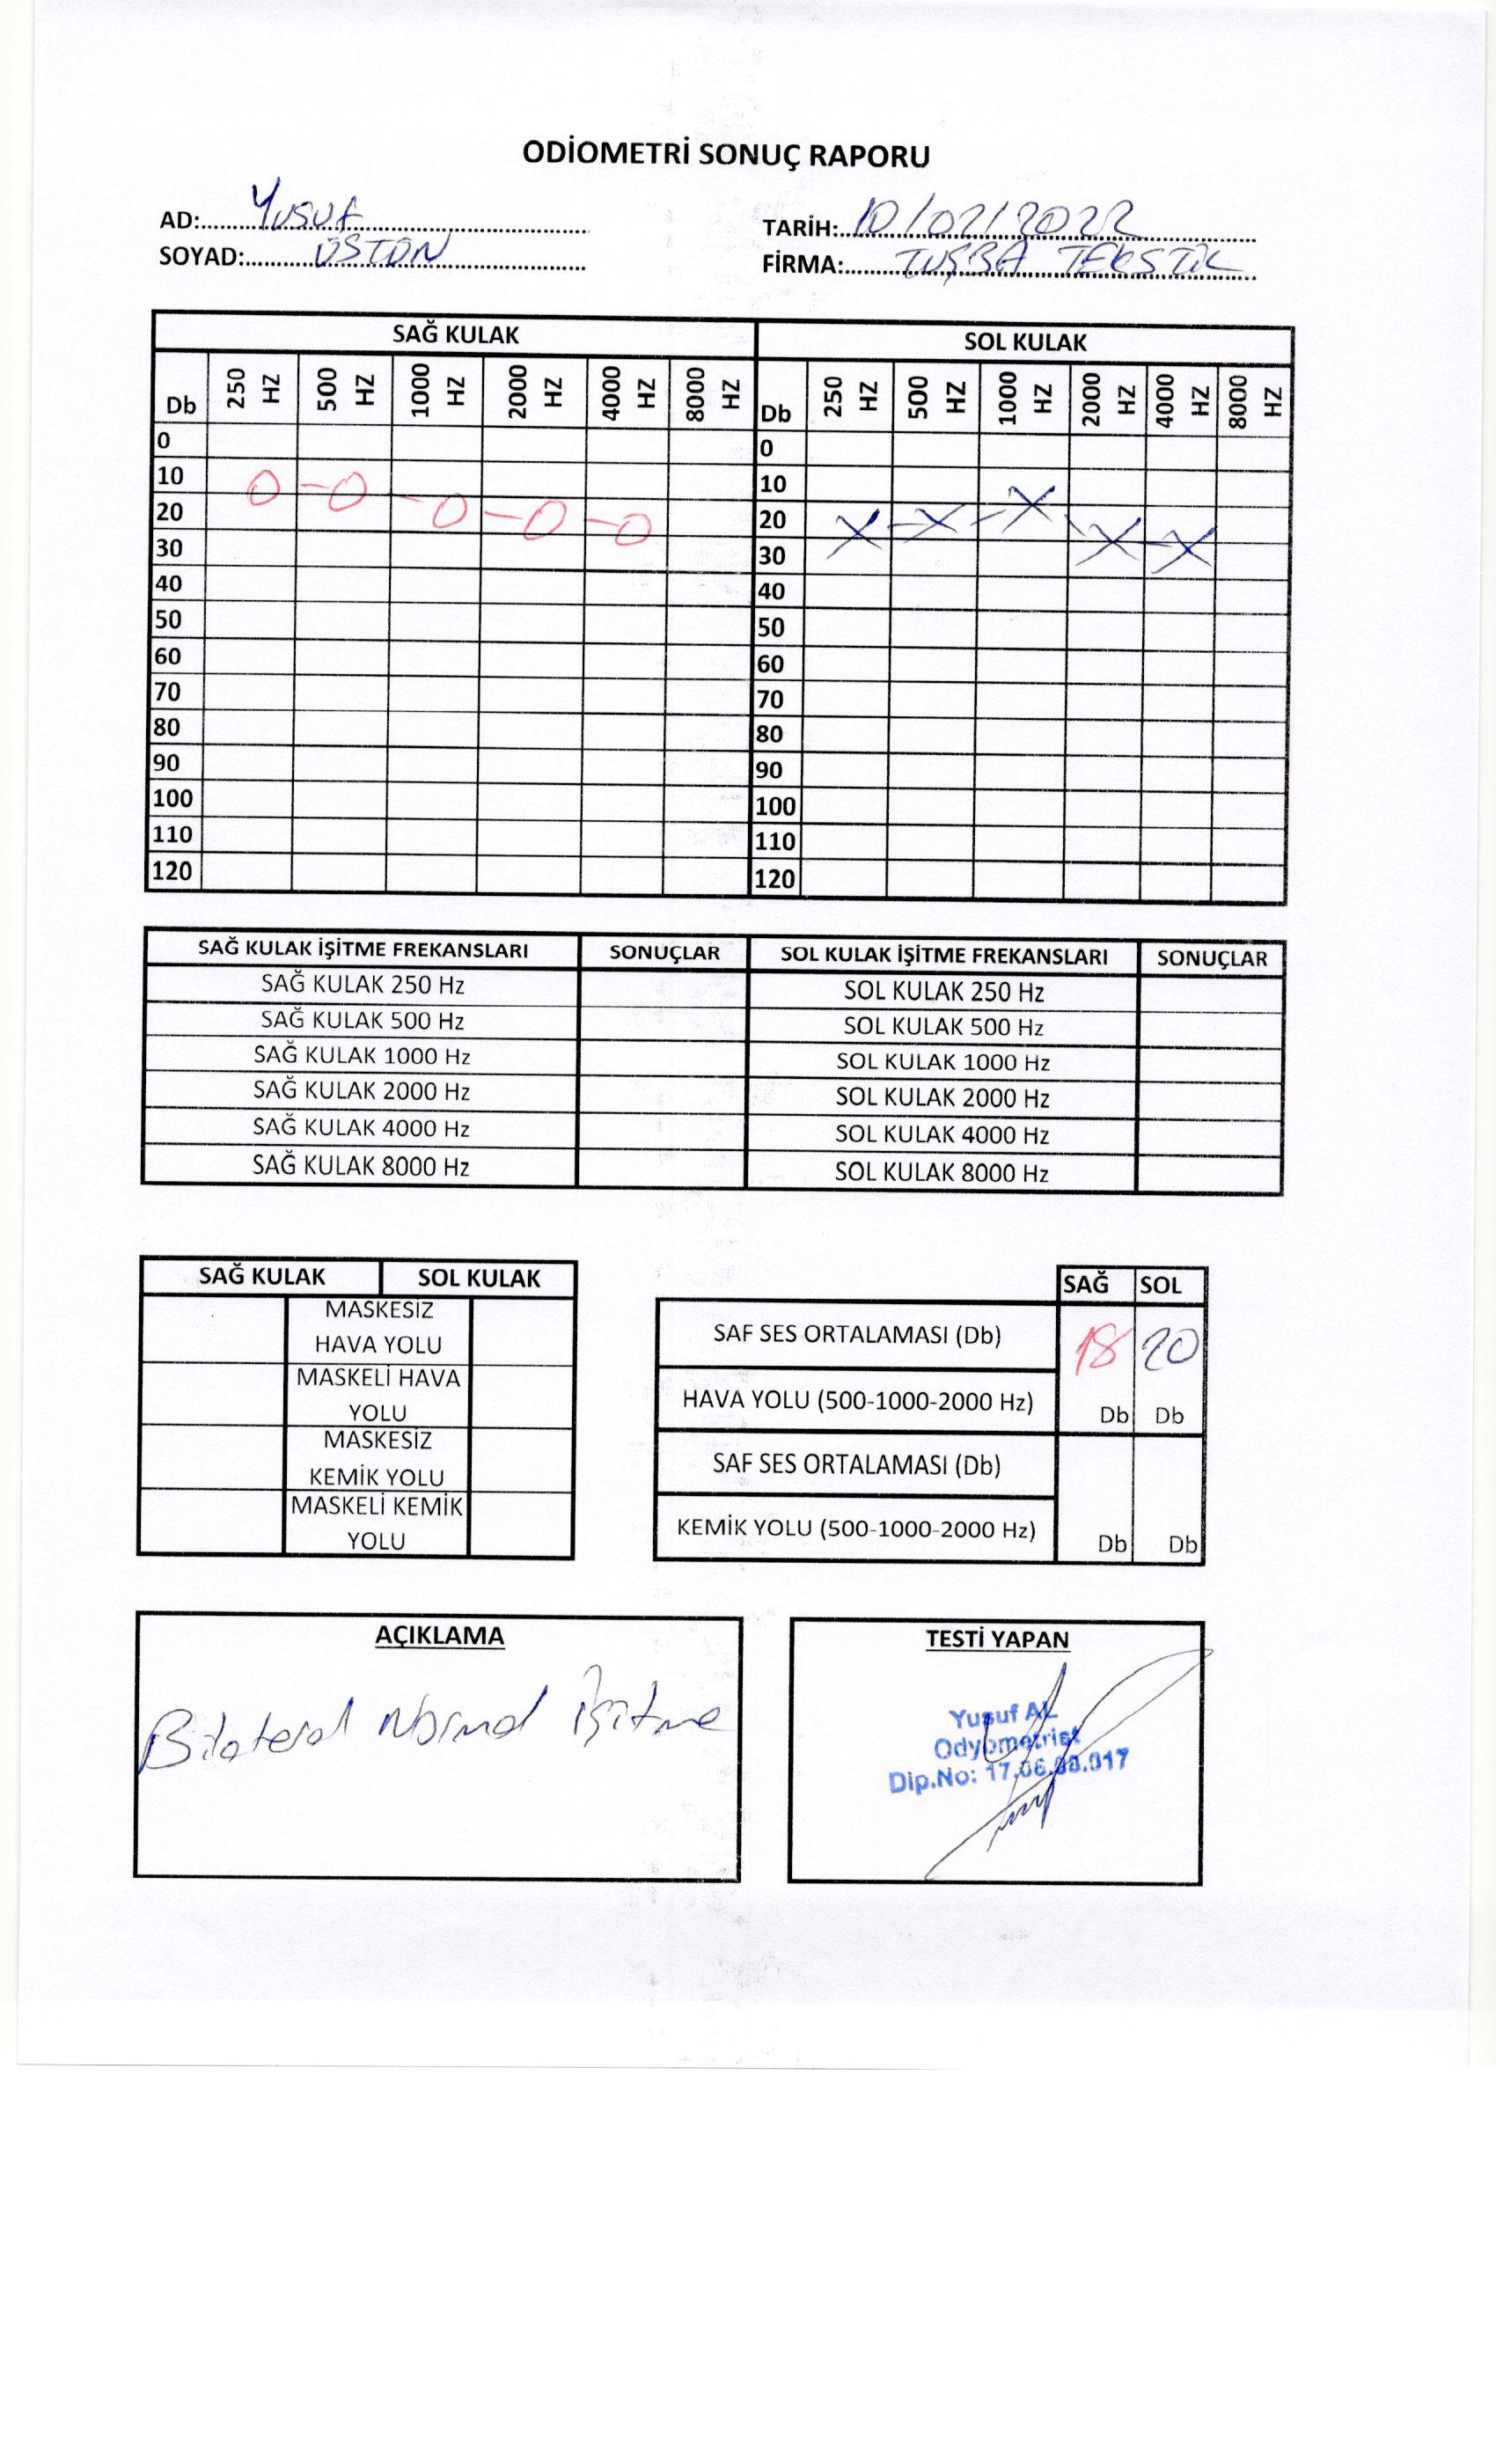 ODİOMETRİ SONUÇ RAPORU
AD: Yusuf TARİH: 10/02/2022
SOYAD: ÜSTÜN FİRMA: TUŞBA TEKSTİL
SAĞ KULAK SOL KULAK
Db 250 HZ 500 HZ 1000 HZ 2000 HZ 4000 HZ 8000 HZ Db 250 HZ 500 HZ 1000 HZ 2000 HZ 4000 HZ 8000 HZ
0 0
10 10
20 20
30 30
40 40
50 50
60 60
70 70
80 80
90 90
100 100
110 110
120 120
SAĞ KULAK İŞİTME FREKANSLARI SONUÇLAR SOL KULAK İŞİTME FREKANSLARI SONUÇLAR
SAĞ KULAK 250 Hz SOL KULAK 250 Hz
SAĞ KULAK 500 Hz SOL KULAK 500 Hz
SAĞ KULAK 1000 Hz SOL KULAK 1000 Hz
SAĞ KULAK 2000 Hz SOL KULAK 2000 Hz
SAĞ KULAK 4000 Hz SOL KULAK 4000 Hz
SAĞ KULAK 8000 Hz SOL KULAK 8000 Hz
SAĞ KULAK SOL KULAK
MASKESİZ
HAVA YOLU
MASKELİ HAVA
YOLU
MASKESİZ
KEMİK YOLU
MASKELİ KEMİK
YOLU
SAĞ SOL
SAF SES ORTALAMASI (Db) 18 20
HAVA YOLU (500-1000-2000 Hz) Db Db
SAF SES ORTALAMASI (Db)
KEMİK YOLU (500-1000-2000 Hz) Db Db
AÇIKLAMA
Bilateral Normal İşitme
TESTİ YAPAN
Yusuf AL
Odyometrist
Dip.No: 17.06.08.017